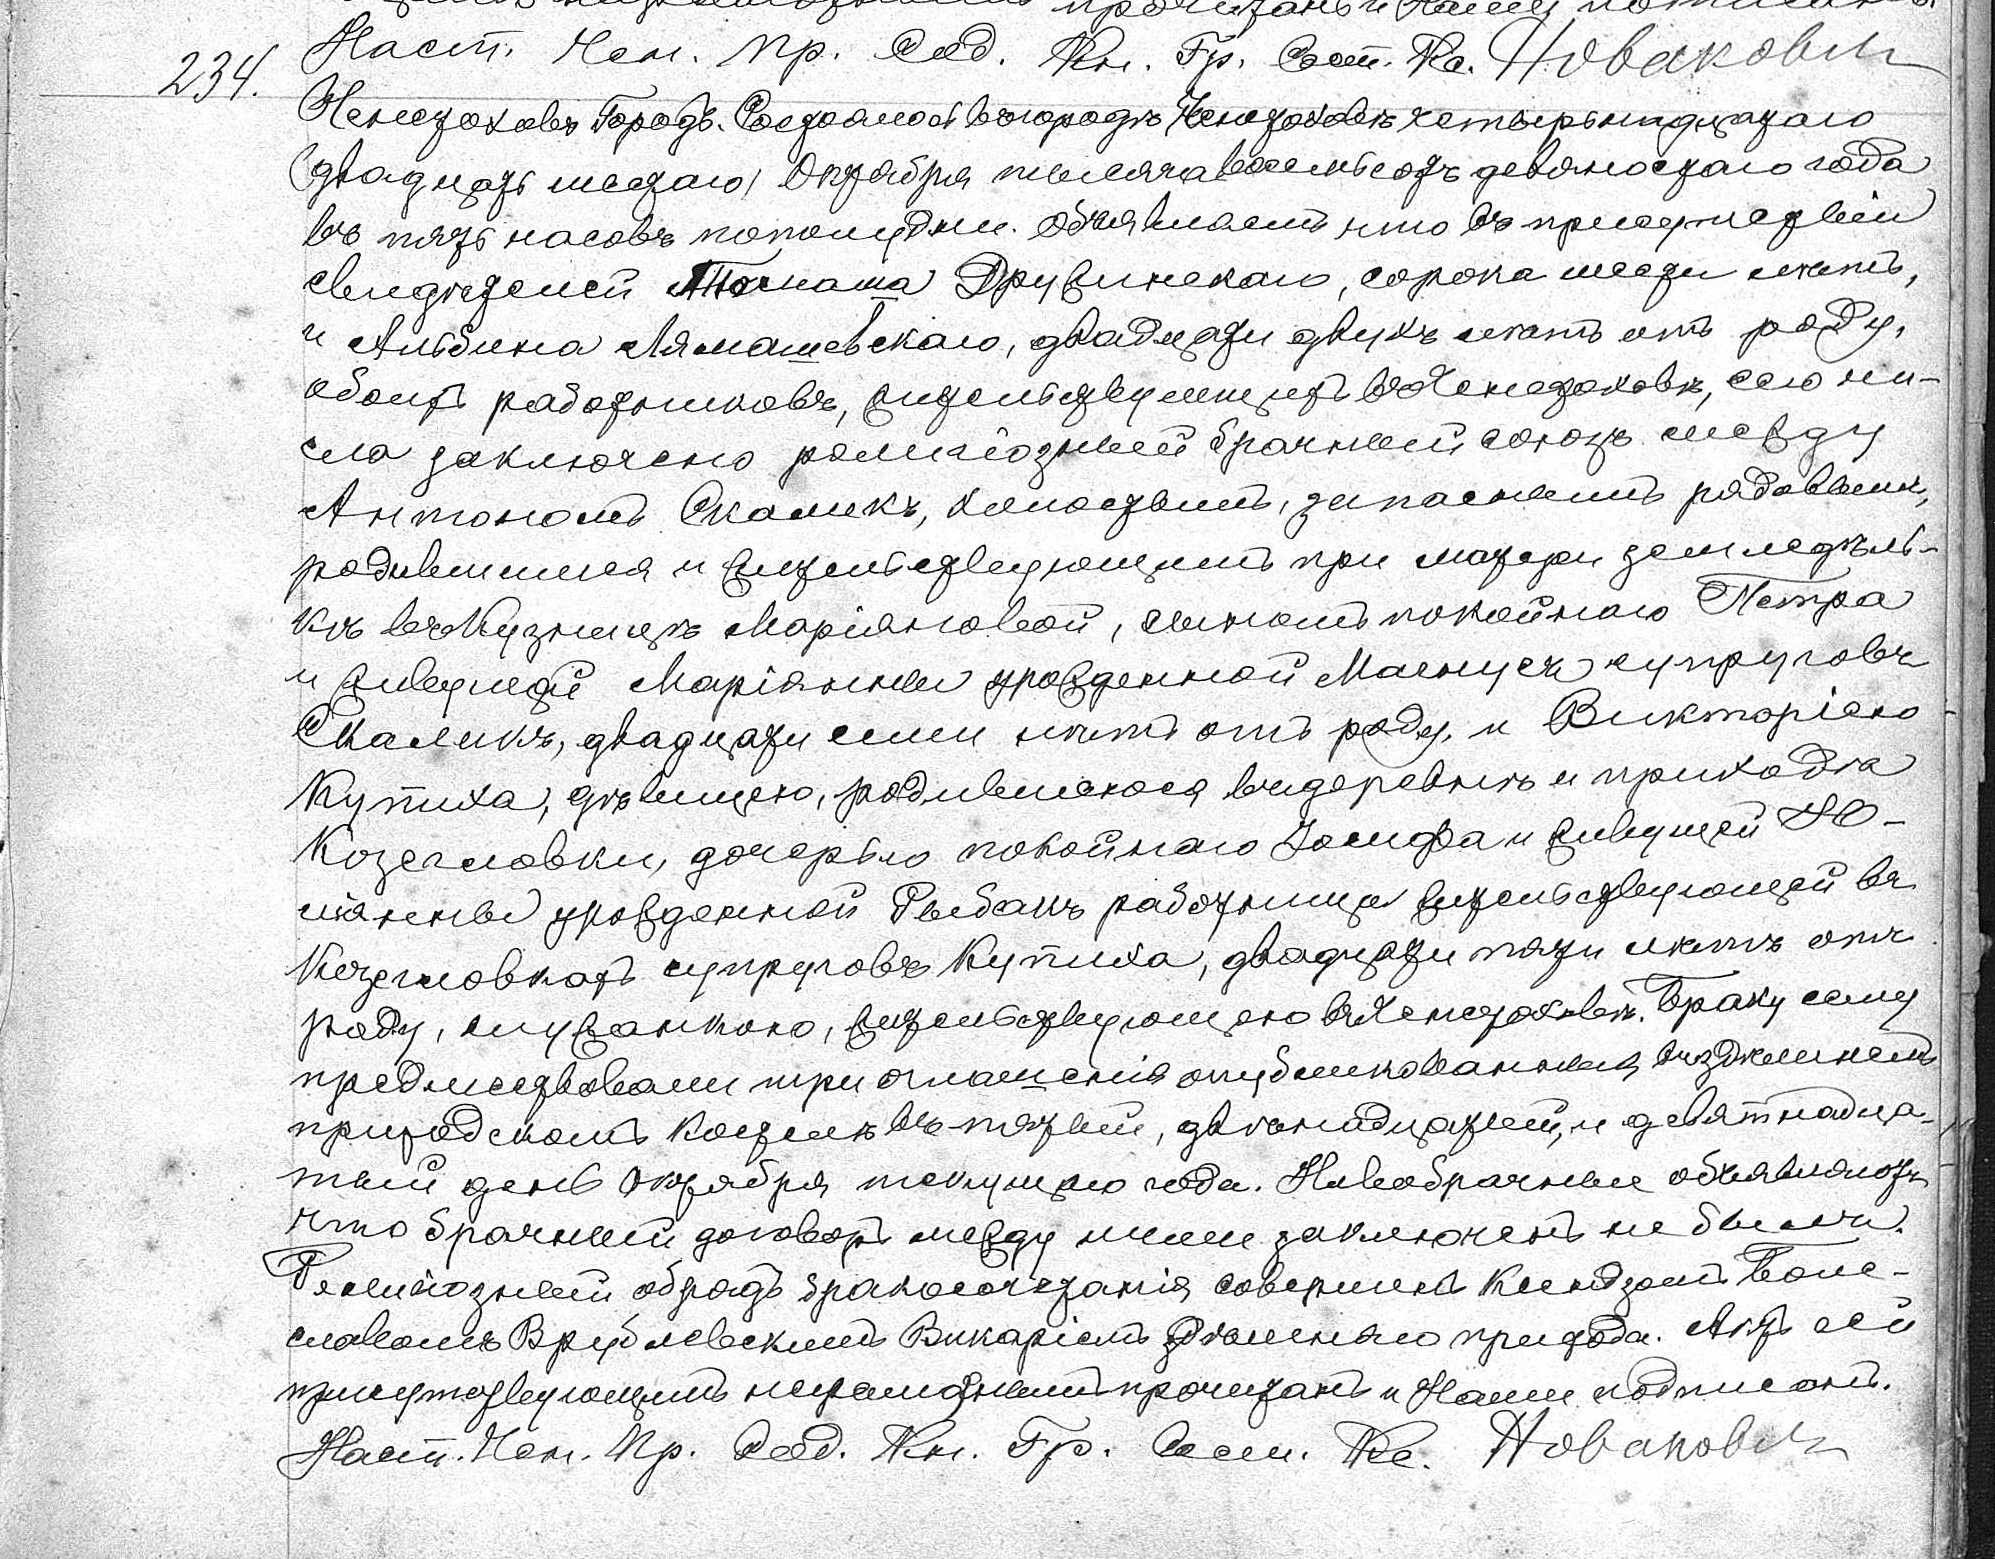 прочитанъ и Нами
Наст. Чен. Пр. Сод. Кн. Гр. Сост. Кс. Новаковск
234.
Ченстоховъ Городъ. Состоялось въ городѣ Ченстоховѣ четырнадцатаго
(двадцать шестаго) Октября тысяча восемьсотъ девяностаго года
въ пять часовъ пополудни. Объявляемъ что въ присутствіи
свидѣтелей Томаша Дружинскаго, сорока шести лѣтъ,
и Альбина Лямашевскаго, двадцати двухъ лѣтъ отъ роду,
обоихъ работниковъ, жительствующихъ въ Ченстоховѣ, сего чи-
сла заключено религіозный брачный союзъ между
Антономъ Скаликъ, холостымъ, запаснымъ рядовымъ,
родившимся и жительствующимъ при матери земледѣль-
кѣ въ Кузницѣ Маріяновой, сыномъ покойнаго Петра
и живущей Маріянны урожденной Магнусъ супруговъ
Скаликъ, двадцати семи лѣтъ отъ роду, и Викторіею
Купиха, дѣвицею, родившеюся въ деревнѣ и прихода
Козегловки, дочерью покойнаго Іосифа и живущей Ю-
ліянны урожденной Рыбакъ работницы жительствующей въ
Козегловкахъ супруговъ Купиха, двадцати пяти лѣтъ отъ
роду, служанкою, жительствующею въ Ченстоховѣ. Браку сему
предшествовали три оглашенія опубликованныя въ здѣшнемъ
приходскомъ костелѣ въ пятый, двѣнадцатый, и девятнадца-
тый день Октября текущаго года. Новобрачные объявляютъ
что брачный договоръ между ними заключенъ не былъ.
Религіозный обрядъ бракосочетанія совершенъ Ксендзомъ Боле-
славомъ Врублевскимъ Викаріемъ здѣшняго прихода. Актъ сей
присутствующимъ неграмотнымъ прочитанъ и Нами подписанъ.
Наст. Чен. Пр. Сод. Кн. Гр. Сост. Кс. Новаковск